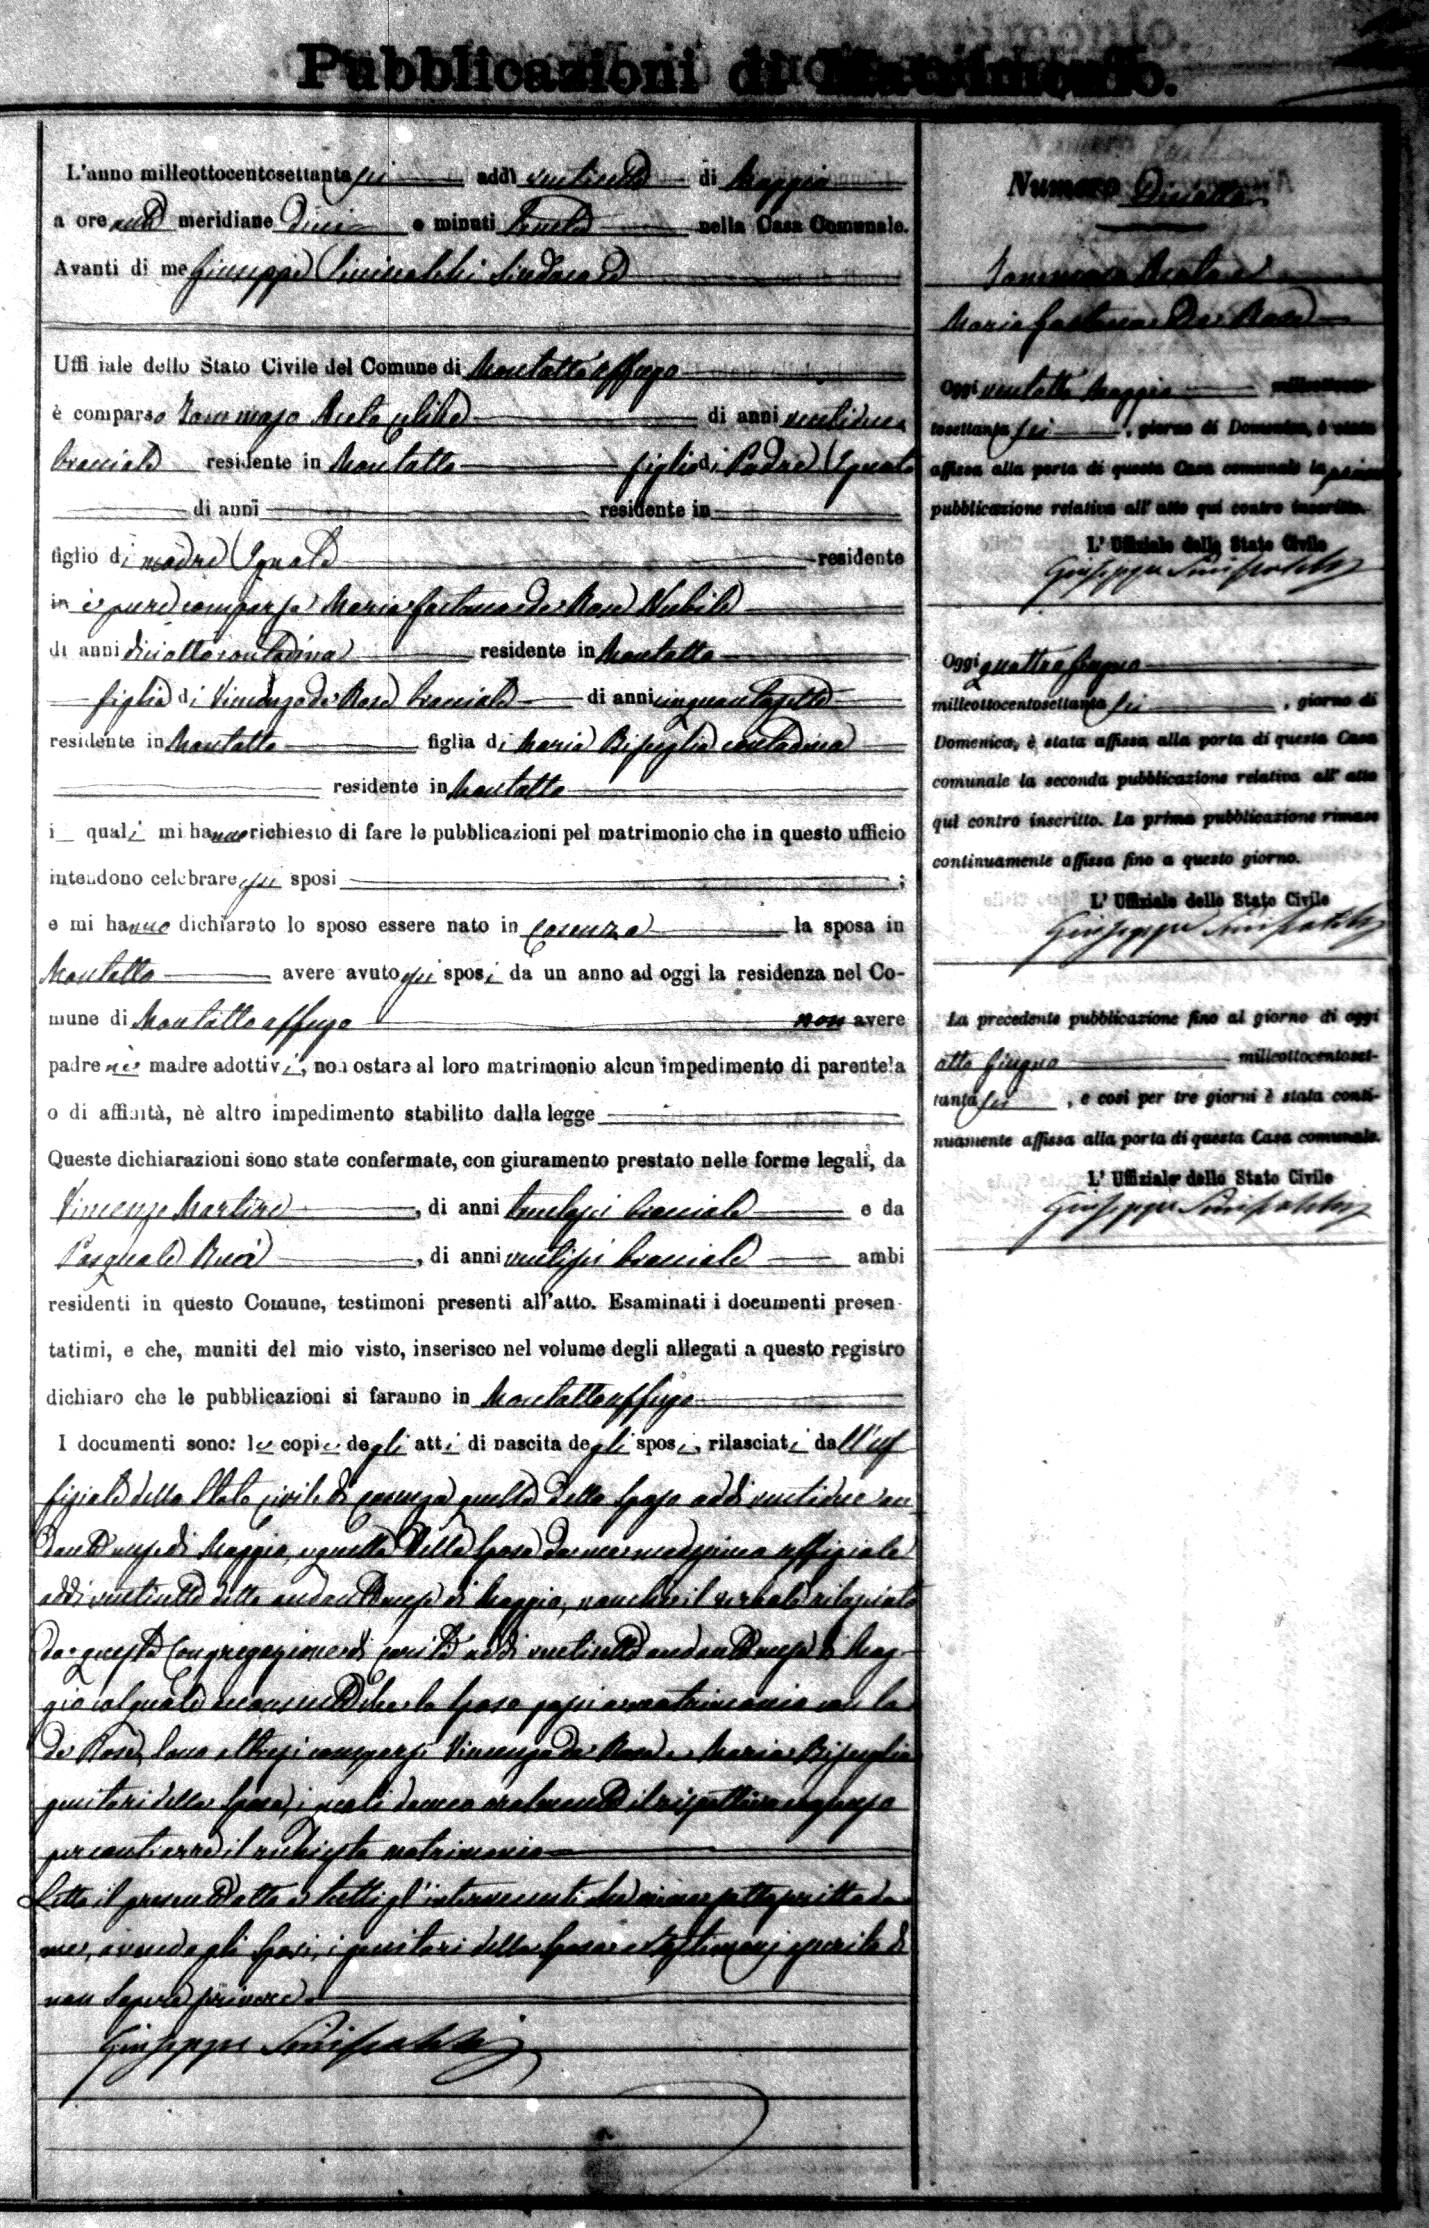 Pubblicazioni di Matrimonio.
L'anno milleottocentosettantasei addì ventisette di Maggio
a ore anti meridiane dieci e minuti trenta nella Casa Comunale.
Avanti di me Giuseppe Sinisalchi Sindaco
Uffi iale dello Stato Civile del Comune di Montalto Uffugo
è comparso Tommaso Aceto celibe di anni ventidue
bracciale residente in Montalto figlio di Padre Ignoto
di anni residente in
figlio di madre Ignota residente
in è pure comparsa Maria Gaetana de Rose Nubile
di anni diciotto contadina residente in Montalto
figlia di Vincenzo de Rose bracciale di anni cinquantasette
residente in Montalto figlia di Maria Bisciglia contadina
residente in Montalto
i quali mi hanno richiesto di fare le pubblicazioni pel matrimonio che in questo ufficio
intendono celebrare essi sposi ;
e mi hanno dichiarato lo sposo essere nato in Cosenza la sposa in
Montalto avere avuto gli sposi da un anno ad oggi la residenza nel Co-
mune di Montalto uffugo non avere
padre nè madre adottivi, non ostare al loro matrimonio alcun impedimento di parentela
o di affinità, nè altro impedimento stabilito dalla legge
Queste dichiarazioni sono state confermate, con giuramento prestato nelle forme legali, da
Vincenzo Martire, di anni trentasei bracciale e da
Pasquale, di anni ventisei bracciale ambi
residenti in questo Comune, testimoni presenti all'atto. Esaminati i documenti presen-
tatimi, e che, muniti del mio visto, inserisco nel volume degli allegati a questo registro
dichiaro che le pubblicazioni si faranno in Montalto uffugo
I documenti sono: le copie degli atti di nascita degli sposi, rilasciati dall'uf
fiziale dello Stato civile di Cosenza quella dello Sposo addì ventidue an
dante mese di Maggio, e quella della Sposa da me medesimo uffiziale
addì ventisette detto andante mese di Maggio, nonchè il verbale rilasciato
da questa Congregazione di Carità addì ventisette andante mese di Mag
gio col quale acconsente che lo Sposo passi a matrimonio con la
de Rose, Sono altresì comparsi Vincenzo de Rose e Maria Bisciglia
genitori della Sposa, i quali danno oralmente il rispettivo consenso
per contrarre il richiesto matrimonio
Letto il presente atto a tutti gl'intervenuti che viene sottoscritto da
me, avendo gli Sposi, i genitori della Sposa e Testimonj asserito di
non sapere scrivere
Giuseppe Sinisalchi
Numero Diciotto
Tommaso Aceto e
Maria Gaetana De Rose
Oggi ventotto Maggio milleottocen-
tosettantasei, giorno di Domenica, è stata
affissa alla porta di questa Casa comunale la prima
pubblicazione relativa all'atto qui contro inscritto.
L'Uffiziale dello Stato Civile
Giuseppe Sinisalchi
Oggi quattro Giugno
milleottocentosettantasei, giorno di
Domenica, è stata affissa alla porta di questa Casa
comunale la seconda pubblicazione relativa all'atto
qui contro inscritto. La prima pubblicazione rimase
continuamente affissa fino a questo giorno.
L'Uffiziale dello Stato Civile
Giuseppe Sinisalchi
La precedente pubblicazione fino al giorno di oggi
otto Giugno milleottocentoset-
tantasei, e così per tre giorni è stata conti-
nuamente affissa alla porta di questa Casa comunale.
L'Uffiziale dello Stato Civile
Giuseppe Sinisalchi